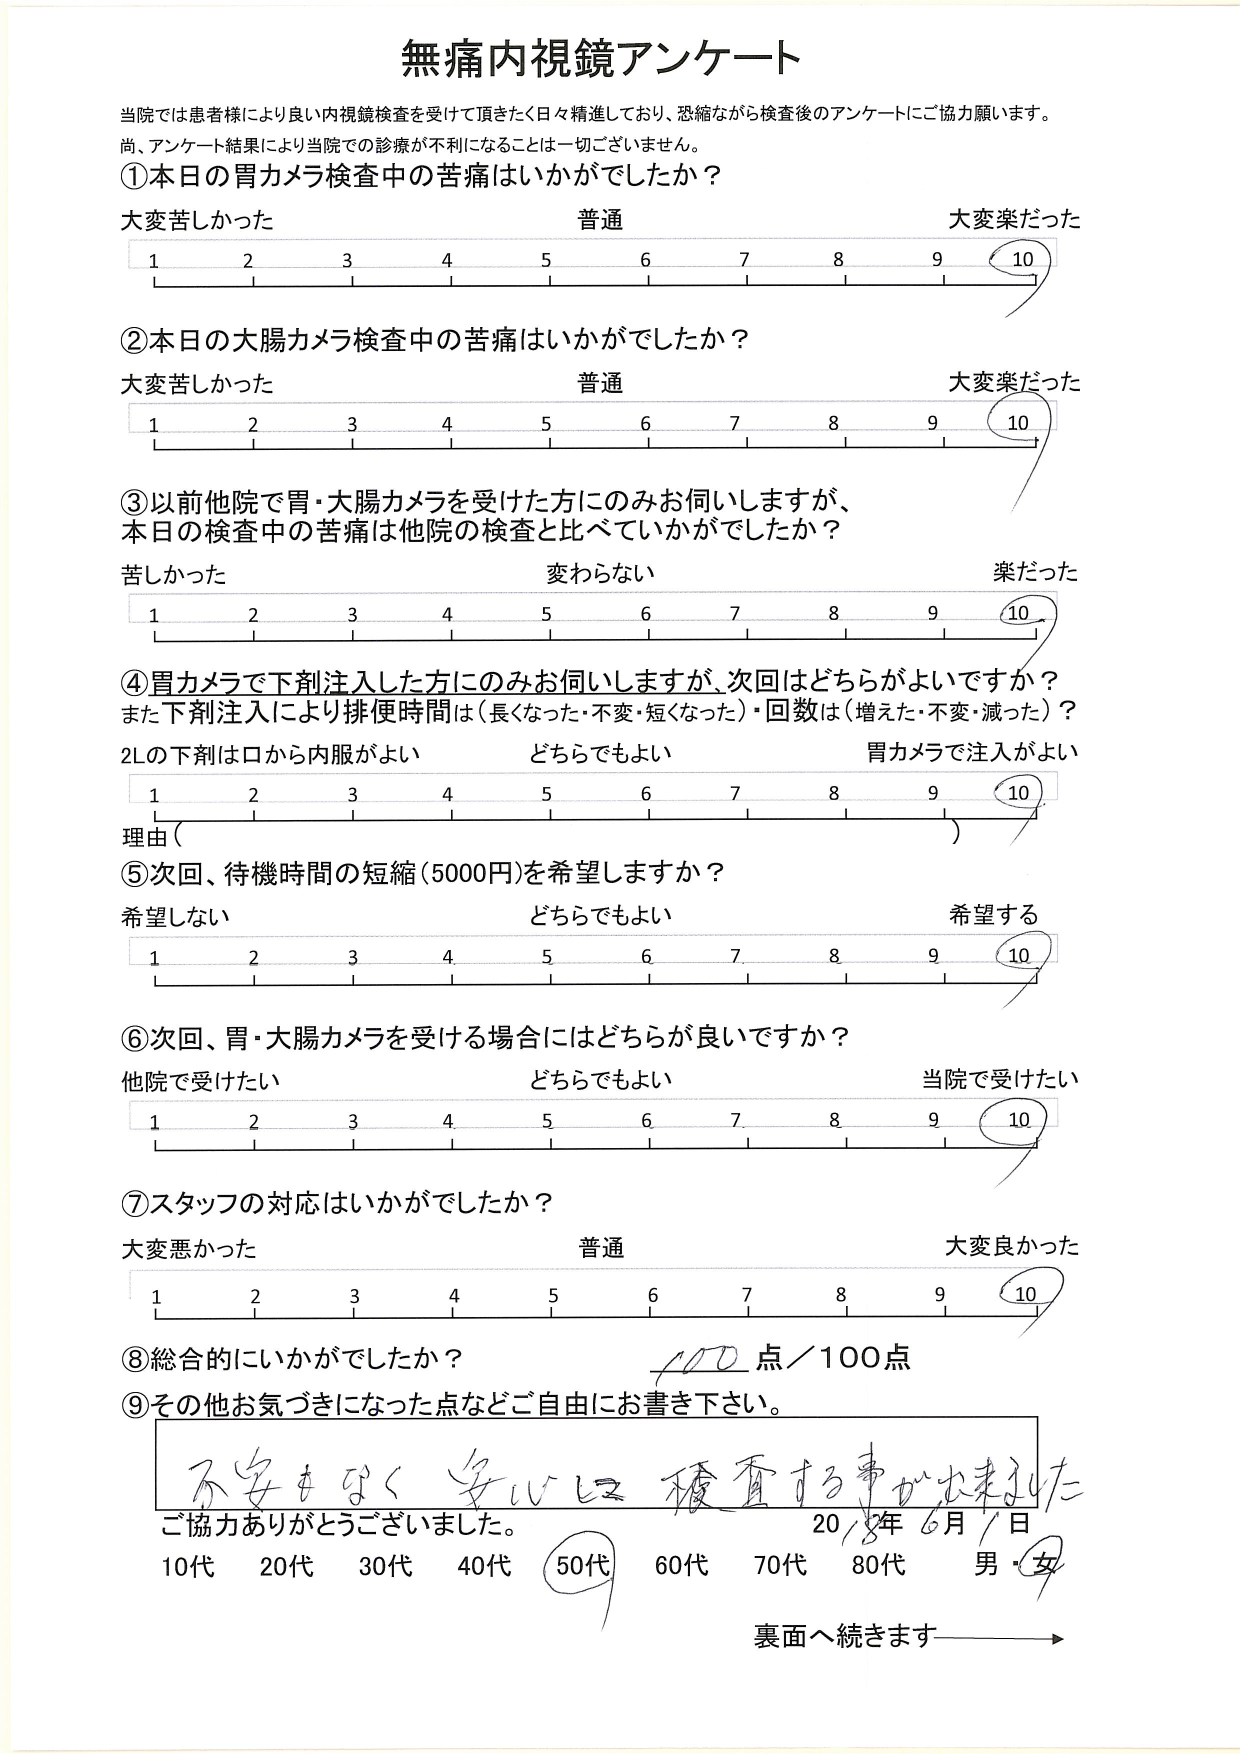 無痛内視鏡アンケート
当院では患者様により良い内視鏡検査を受けて頂きたく日々精進しており、恐縮ながら検査後のアンケートにご協力願います。
尚、アンケート結果により当院での診療が不利になることは一切ございません。
①本日の胃カメラ検査中の苦痛はいかがでしたか？
大変苦しかった 普通 大変楽だった
1 2 3 4 5 6 7 8 9 10
②本日の大腸カメラ検査中の苦痛はいかがでしたか？
大変苦しかった 普通 大変楽だった
1 2 3 4 5 6 7 8 9 10
③以前他院で胃・大腸カメラを受けた方にのみお伺いしますが、
本日の検査中の苦痛は他院の検査と比べていかがでしたか？
苦しかった 変わらない 楽だった
1 2 3 4 5 6 7 8 9 10
④胃カメラで下剤注入した方にのみお伺いしますが、次回はどちらがよいですか？
また下剤注入により排便時間は（長くなった・不変・短くなった）・回数は（増えた・不変・減った）？
2Lの下剤は口から内服がよい どちらでもよい 胃カメラで注入がよい
1 2 3 4 5 6 7 8 9 10
理由（ ）
⑤次回、待機時間の短縮（5000円）を希望しますか？
希望しない どちらでもよい 希望する
1 2 3 4 5 6 7 8 9 10
⑥次回、胃・大腸カメラを受ける場合にはどちらが良いですか？
他院で受けたい どちらでもよい 当院で受けたい
1 2 3 4 5 6 7 8 9 10
⑦スタッフの対応はいかがでしたか？
大変悪かった 普通 大変良かった
1 2 3 4 5 6 7 8 9 10
⑧総合的にいかがでしたか？ 100 点／100点
⑨その他お気づきになった点などご自由にお書き下さい。
不安もなく 安心して 検査する事が出来ました
ご協力ありがとうございました。 2018年 6月 1日
10代 20代 30代 40代 50代 60代 70代 80代 男・女
裏面へ続きます